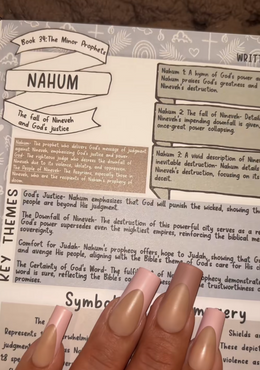 Book 34: The Minor Prophets
NAHUM
The Fall of Nineveh
and God's justice
WRITT
Nahum 1: A hymn of God's power a
Nahum praises God's greatness and
Nineveh's destruction.
Nahum 2: The fall of Nineveh- Detail
Nineveh's impending downfall is given,
once-great power collapsing.
Nahum 3: A vivid description of Nine
inevitable destruction- Nahum details
Nineveh's destruction, focusing on its
Nahum- The prophet who delivers God's message of judgment
against Nineveh, emphasizing God's justice and power.
God- The righteous judge who decrees the downfall of
Nineveh due to its violence, idolatry, and
The People of Nineveh- The Assyrians, especially those in
Nineveh, who are the recipients of Nahum's prophecy of
KEY THEMES
God's Justice- Nahum emphasizes that God will punish the wicked, showing the
people are beyond His judgment.
The Downfall of Nineveh- The destruction of this powerful city serves as a re
God's power supersedes even the mightiest empires, reinforcing the biblical me
sovereignty.
Comfort for Judah- Nahum's prophecy offers hope to Judah, showing that G
and avenge His people, aligning with the Bible's theme of God's care for His
The Certainty of God's Word- The fulfil of N prophecy demonstrate
word is sure, reflecting the Bible's trustworthiness o
promises.
Symbo ery
The Shield
Represents rwhelmin These depict
1:8 violence as